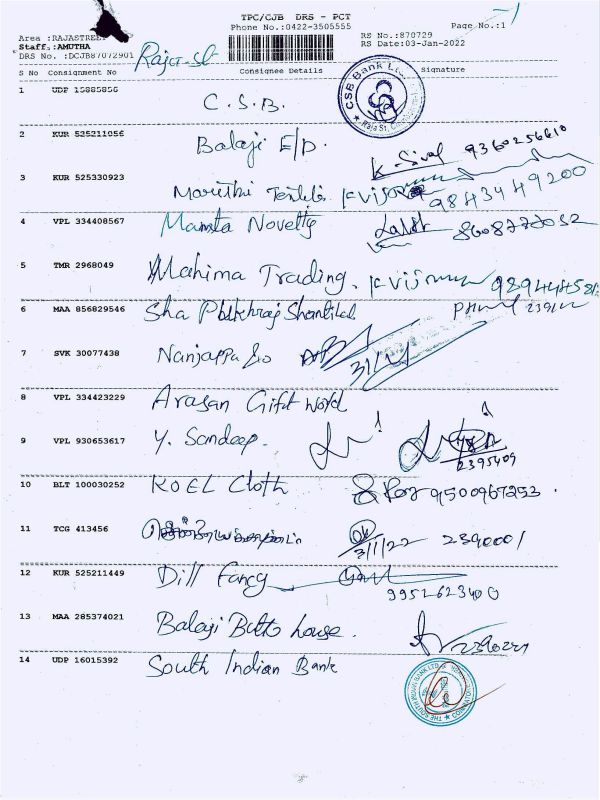 TPC/CJB DRS - PCT
Phone No.:0422-3505555 Page No.:1
Area :RAJASTREET RS No.:870729
Staff.:AMUTHA RS Date:03-Jan-2022
DRS No. :DCJB87072901 Raja-St
S No Consignment No Consignee Details Signature
CSB Bank
1 UDP 15885856 C.S.B.
2 KUR 525211056 Balaji E/p. K. Sival 9360256610
3 KUR 525330923 Maruthi Textiles 9843449200
4 VPL 334408567 Mamta Novelty 8608772032
5 TMR 2968049 Mahima Trading.
6 MAA 856829546 Sha Shantilal
7 SVK 30077438 Nanjappa & Co
8 VPL 334423229 Arasan Gift World
9 VPL 930653617 Y. Sandeep. 2395409
10 BLT 100030252 KOEL Cloth 9500967253.
11 TCG 413456 3/1/22 2390001
12 KUR 525211449 Dill Fancy 9952623400
13 MAA 285374021 Balaji Butto house.
14 UDP 16015392 South Indian Bank
THE SOUTH INDIAN BANK LTD.